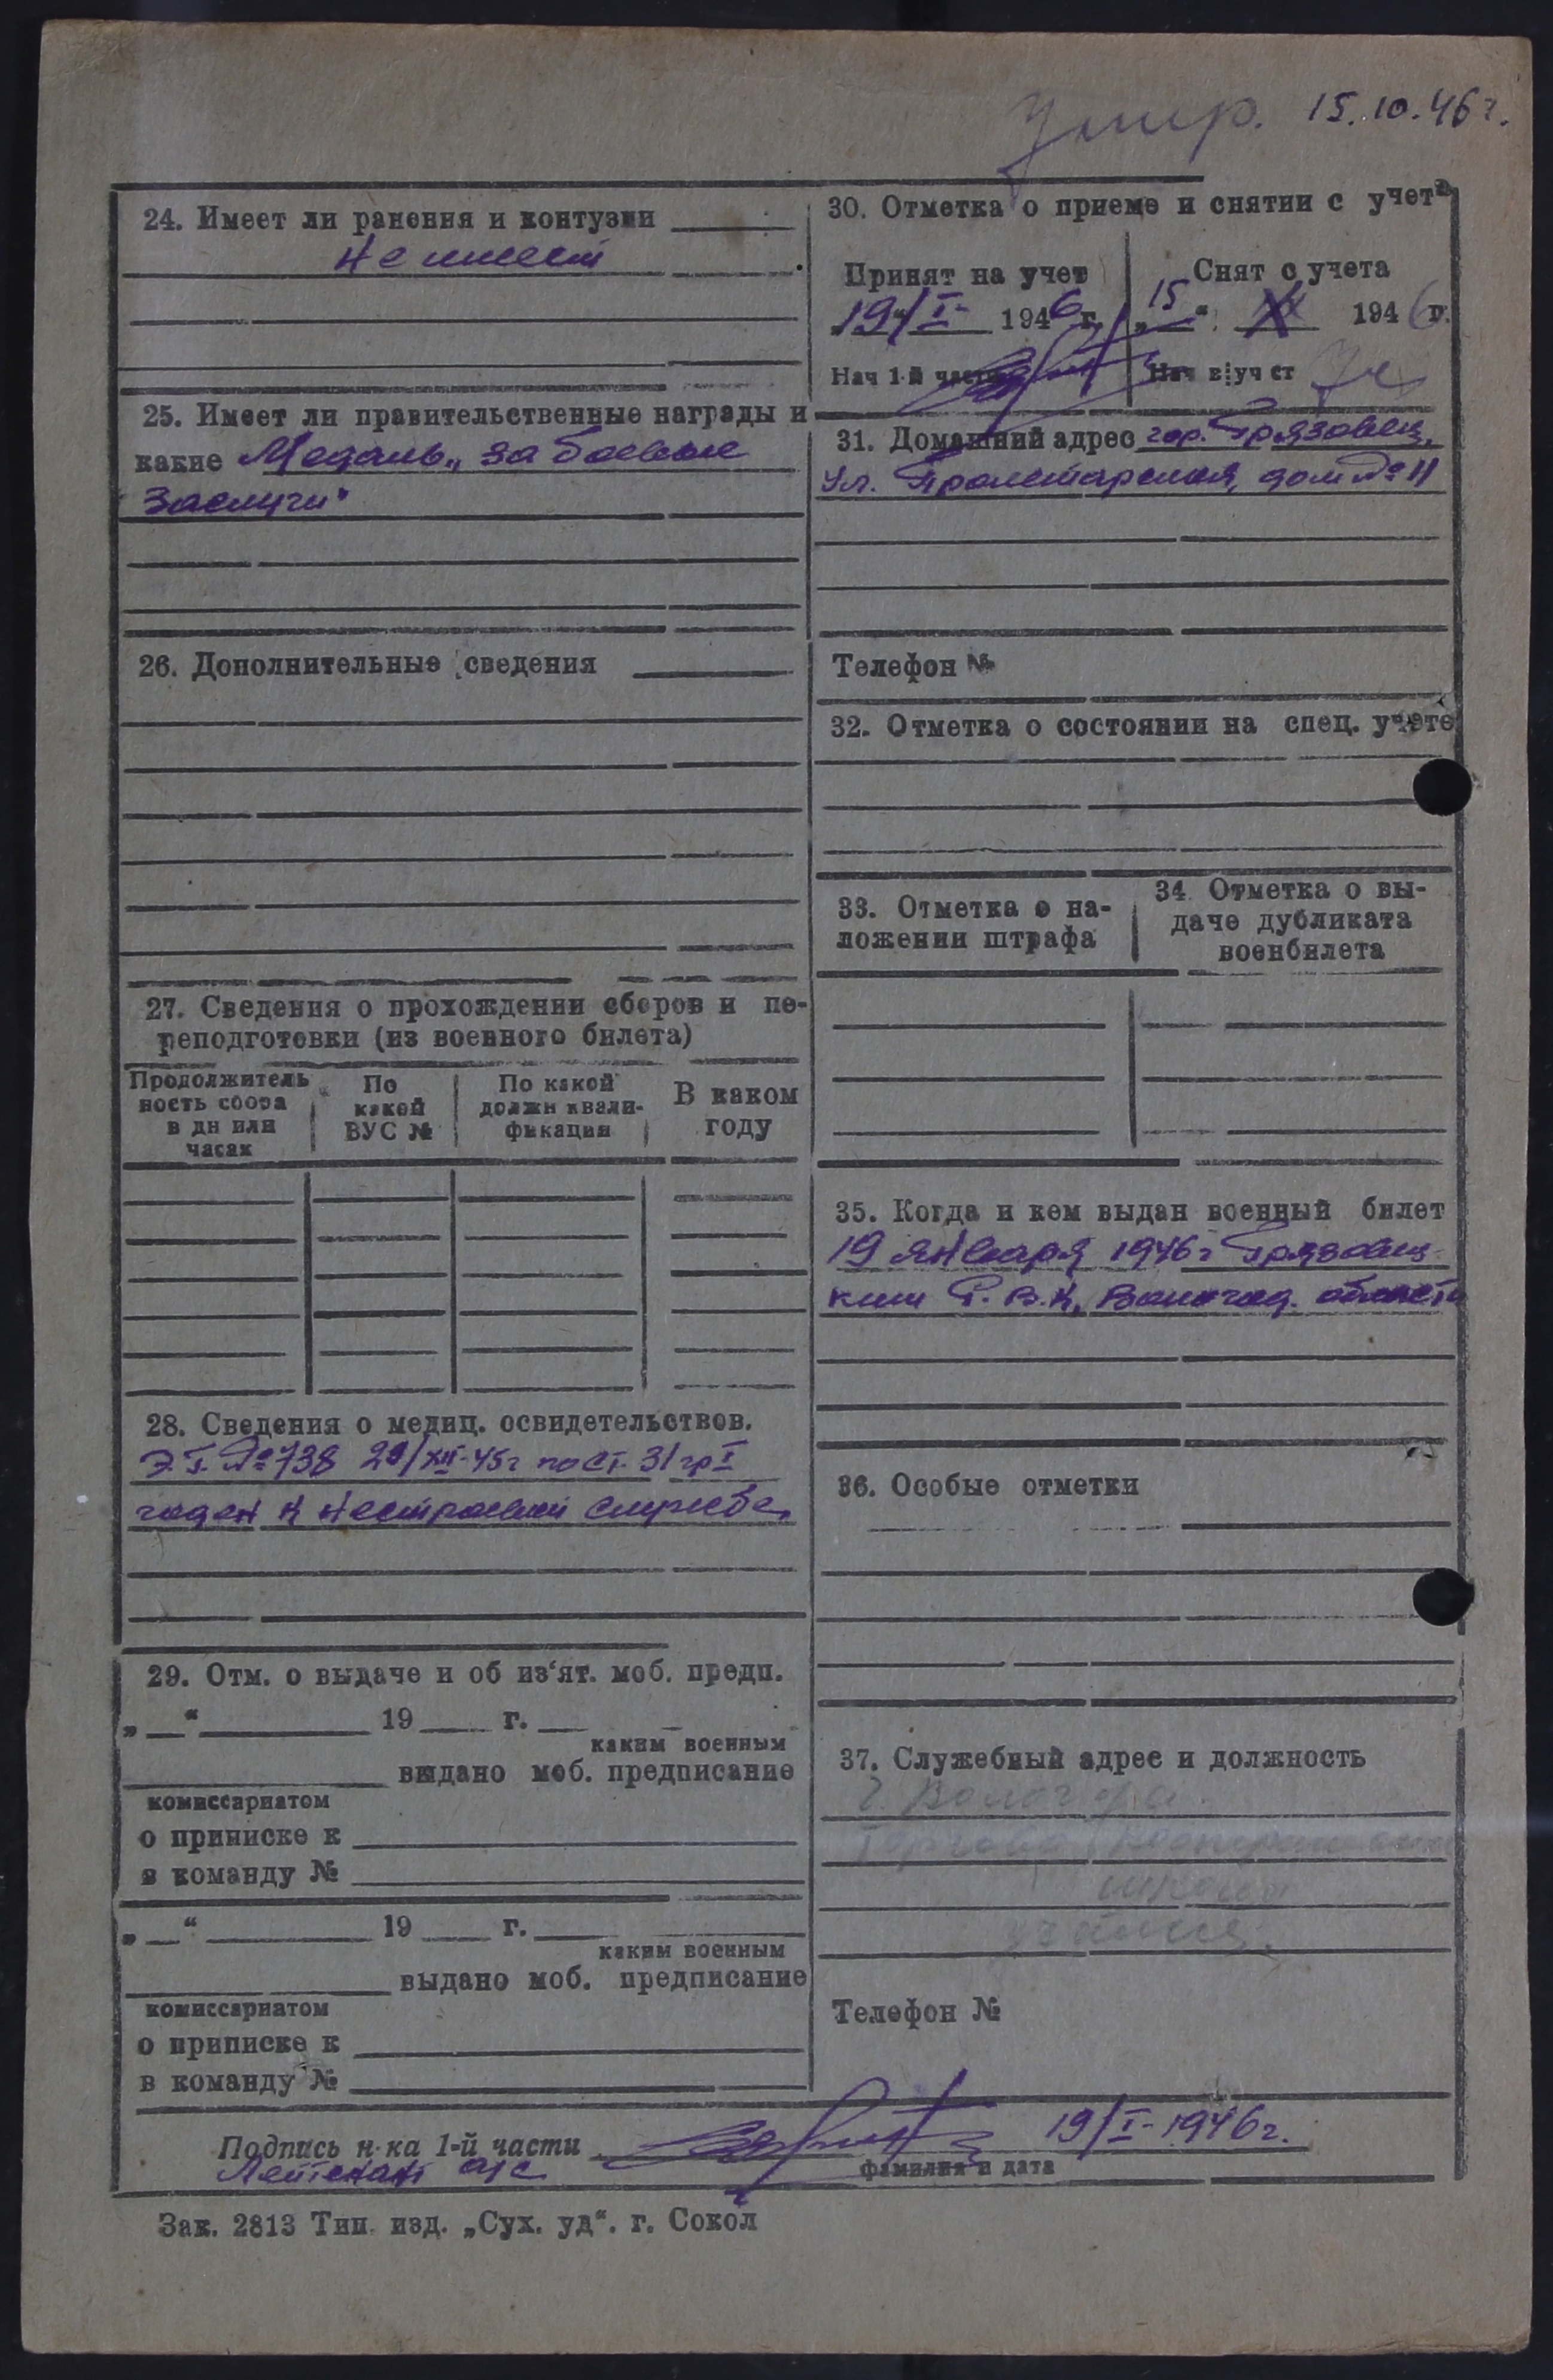 Умер. 15.10.46 г.
24. Имеет ли ранения и контузии
не имеет
25. Имеет ли правительственные награды и
какие Медаль „За боевые
заслуги"
26. Дополнительные сведения
27. Сведения о прохождении сборов и пе-
реподготовки (из военного билета)
Продолжитель
ность сбора
в дн или
часах
По
какой
ВУС №
По какой
должн квали-
фикации
В каком
году
28. Сведения о медиц. освидетельствов.
Э.Г. № 738 29/XII-45г по ст. 31 гр I
годен к нестроевой службе.
29. Отм. о выдаче и об из'ят. моб. предп.
„ “ 19 г.
каким военным
выдано моб. предписание
комиссариатом
о приписке к
в команду №
„ “ 19 г.
каким военным
выдано моб. предписание
комиссариатом
о приписке к
в команду №
30. Отметка о приеме и снятии с учета
Принят на учет
19/I 1946 г.
Нач 1-й части
Снят с учета
„15“ X 1946 г.
Нач в уч ст
31. Домашний адрес гор. Грязовец,
ул. Пролетарская, дом № 11
Телефон №
32. Отметка о состоянии на спец. учете
33. Отметка о на-
ложении штрафа
34. Отметка о вы-
даче дубликата
военбилета
35. Когда и кем выдан военный билет
19 января 1946 г Грязовец-
ким Р.В.К. Вологод. области
36. Особые отметки
37. Служебный адрес и должность
г. Вологда
школа
Телефон №
Подпись н-ка 1-й части 19/I-1946 г.
Лейтенант а/с
фамилия и дата
Зак. 2813 Тип. изд. „Сух. уд“. г. Сокол